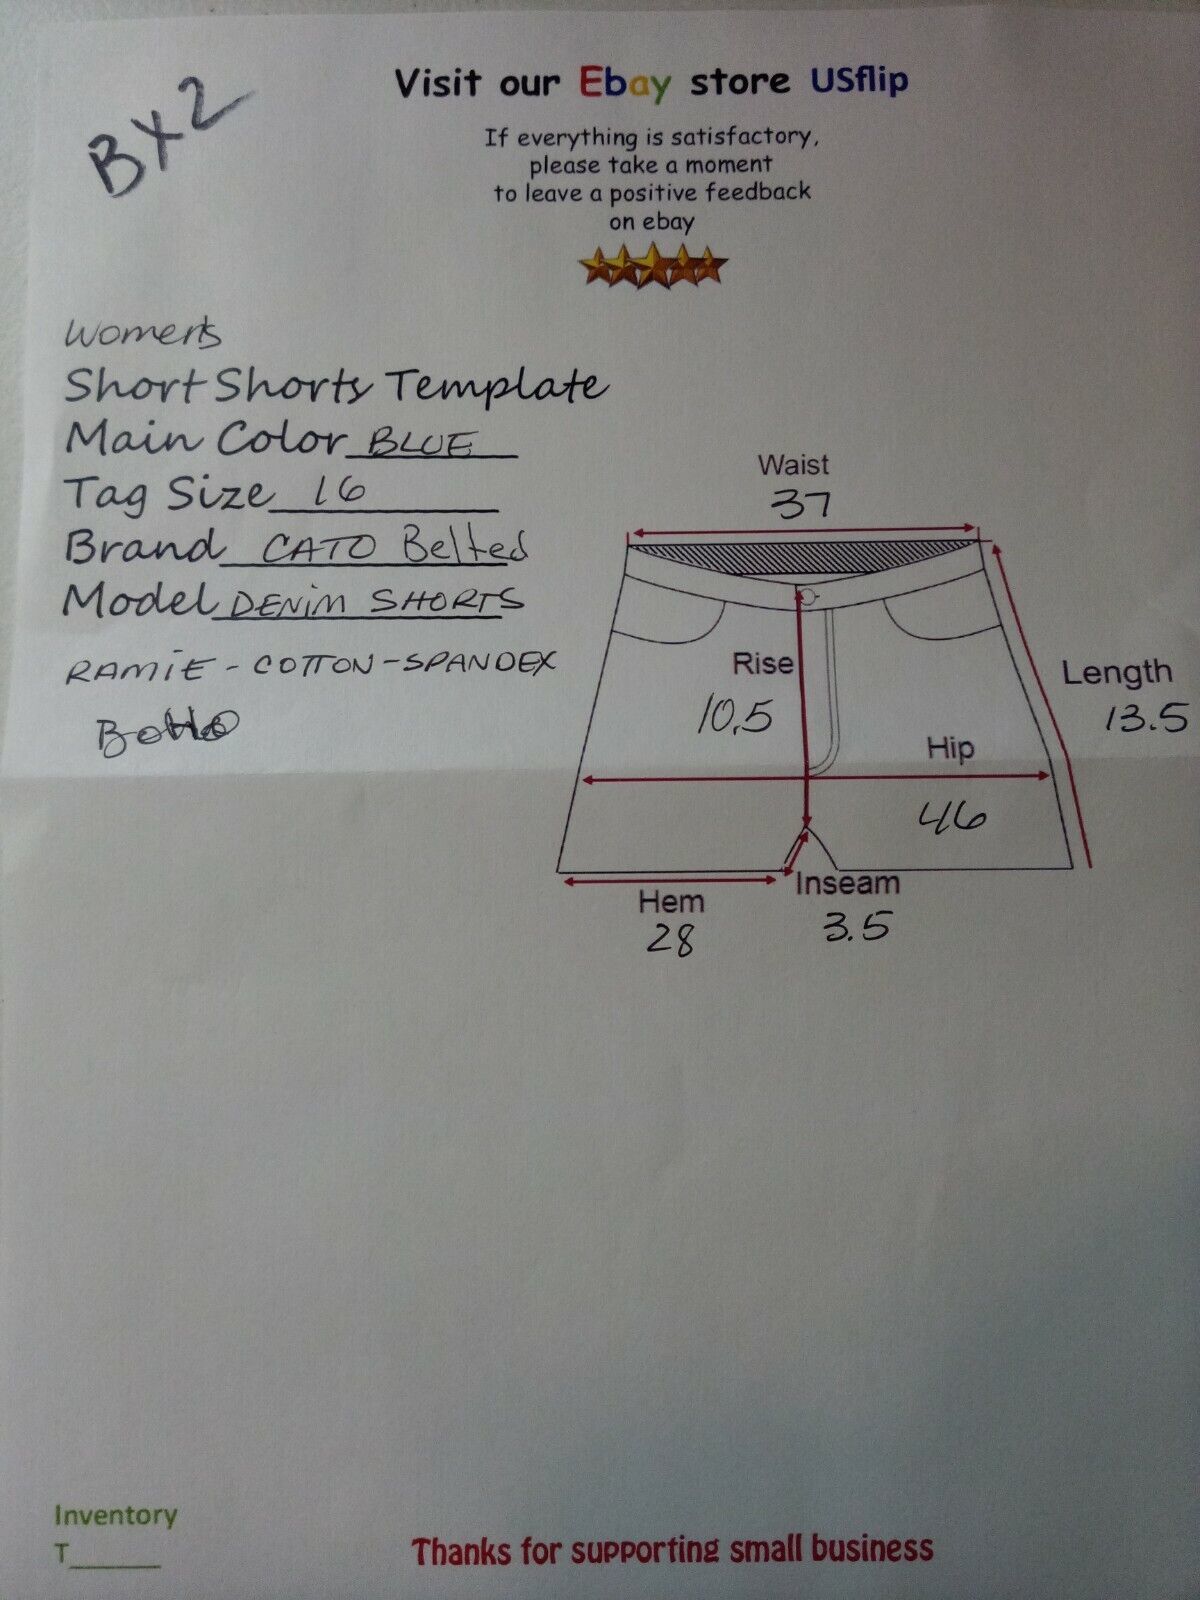 BX2
Visit our Ebay store USflip
If everything is satisfactory,
please take a moment
to leave a positive feedback
on ebay
Women's
Short Shorts Template
Main Color BLUE
Tag Size 16
Brand CATO Belted
Model DENIM SHORTS
RAMIE - COTTON - SPANDEX
Waist
37
Rise
10.5
Length
13.5
Hip
46
Hem
28
Inseam
3.5
Inventory
T______
Thanks for supporting small business